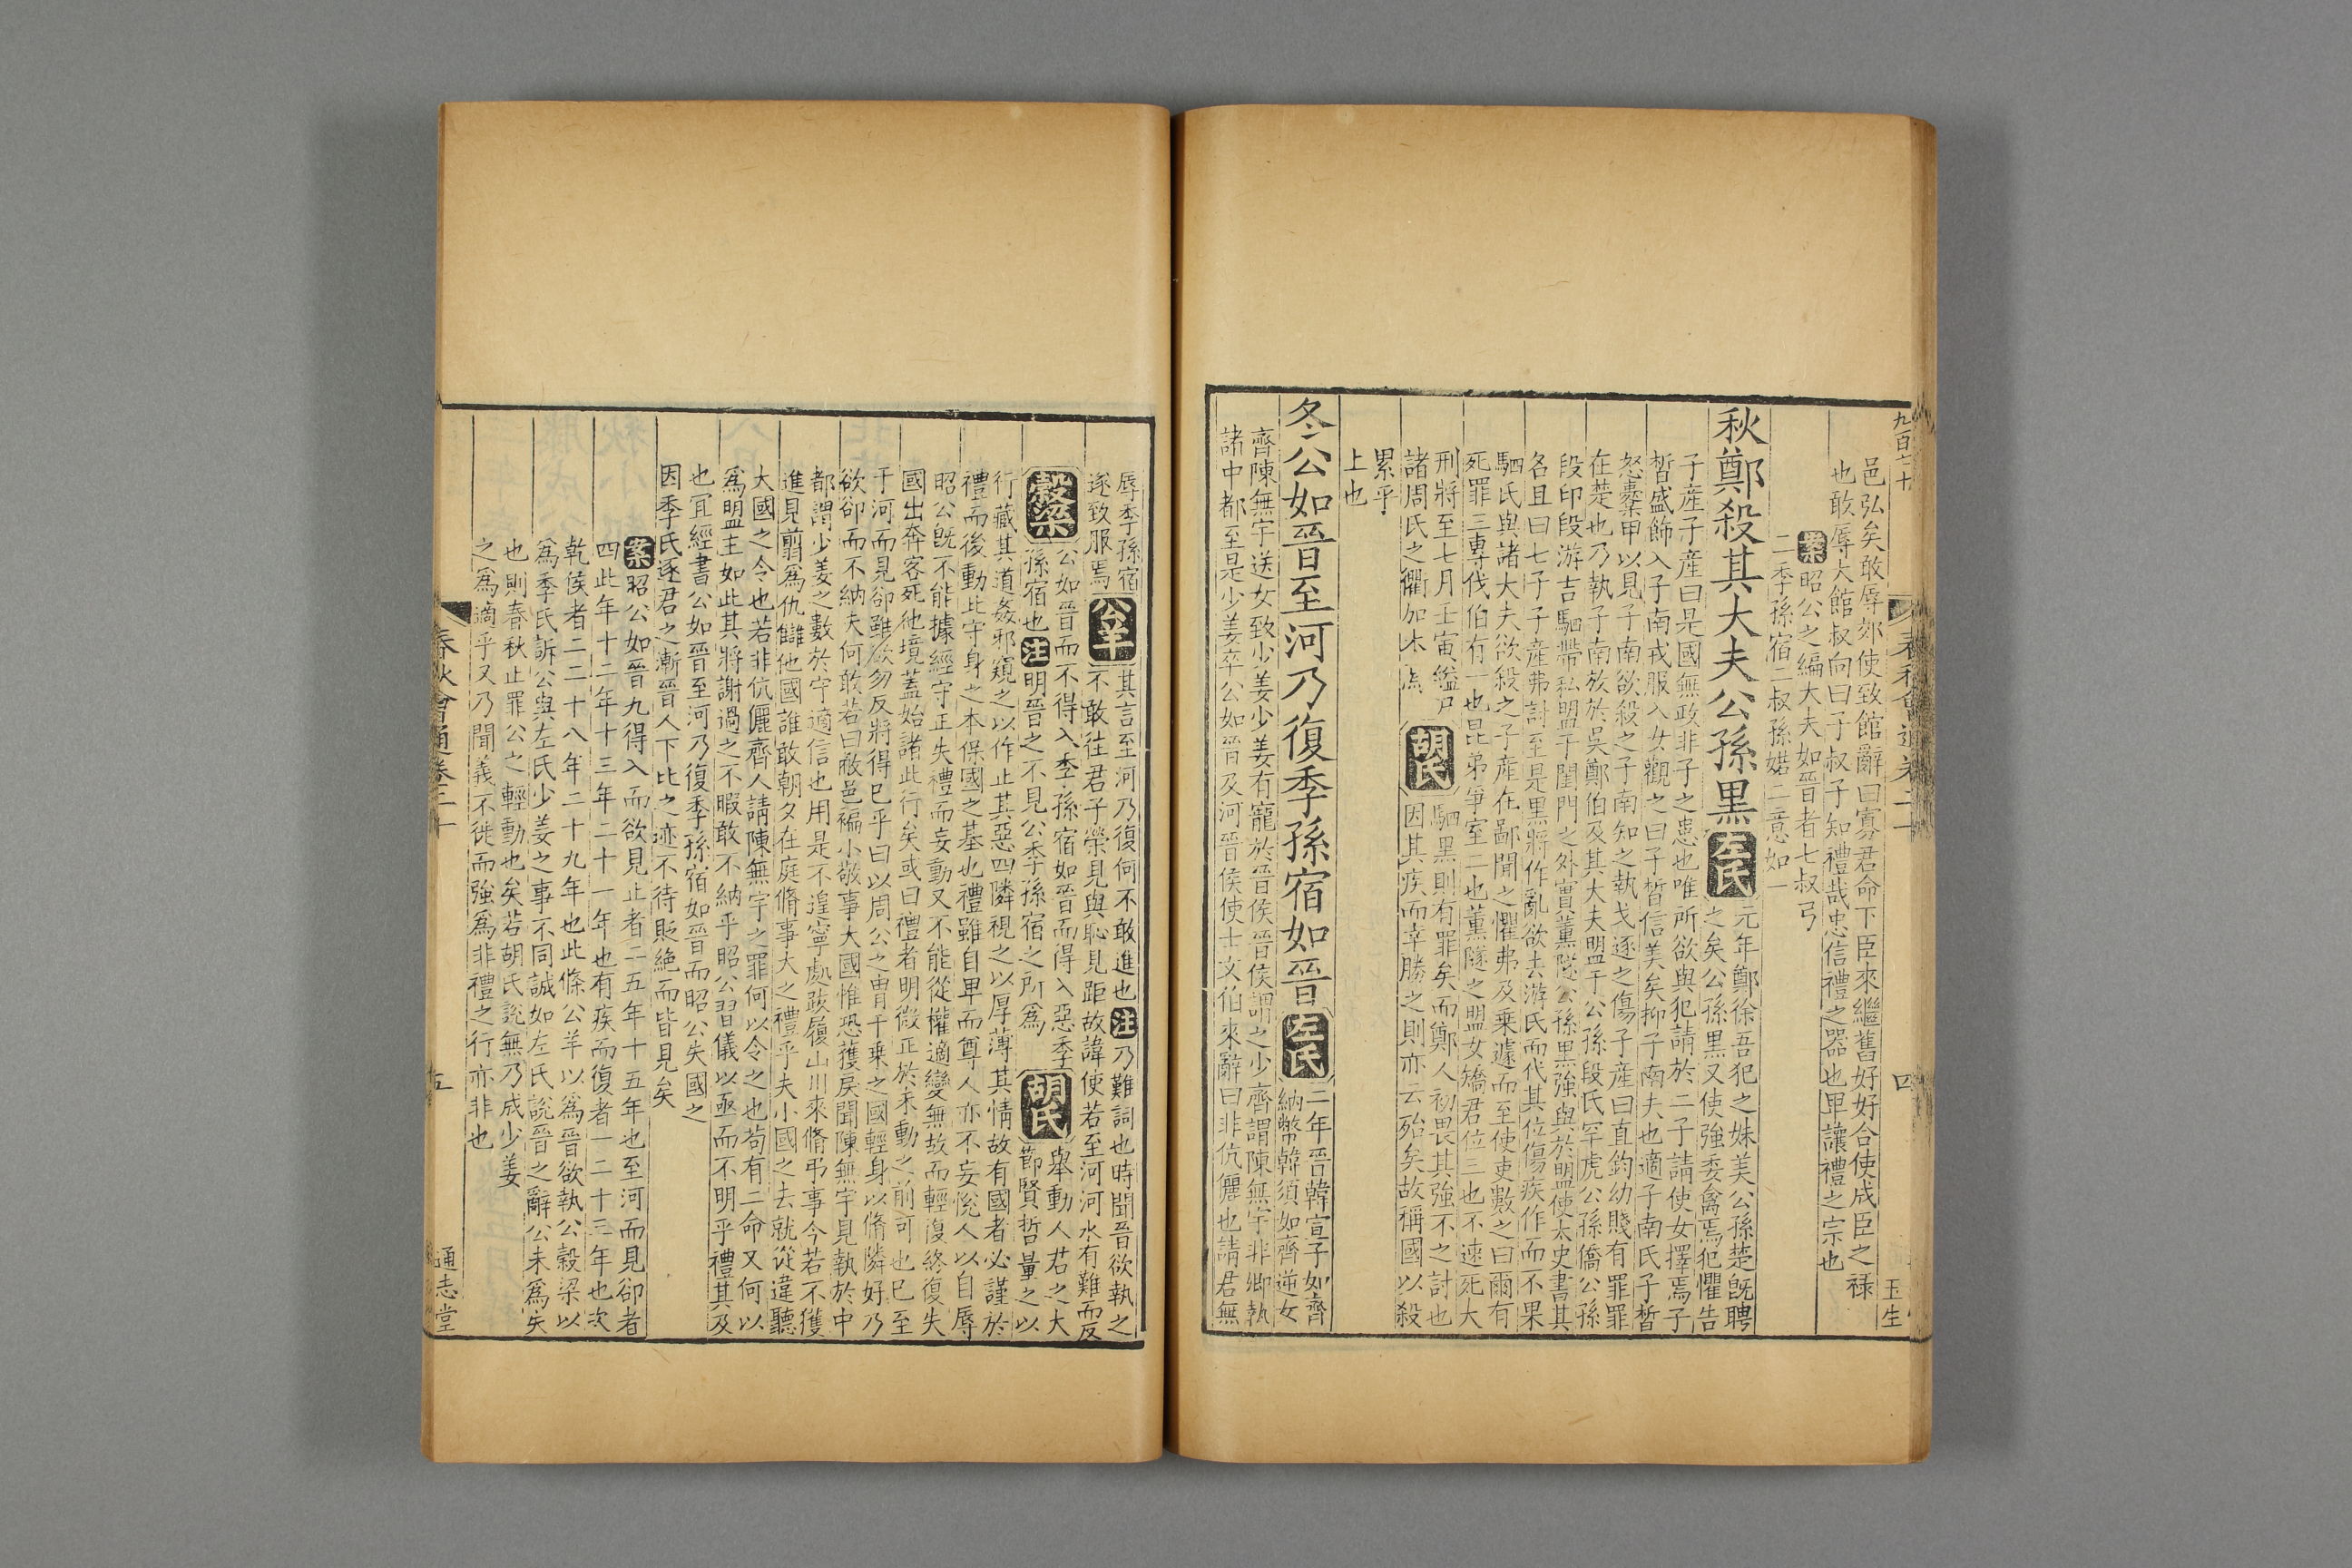 九百七十
四
玉生
邑弘矣敢辱郊使致館辭曰寡君命下臣來繼舊好好合使成臣之祿
也敢辱大館叔向曰子叔子知禮哉忠信禮之器也卑讓禮之宗也
案昭公之編大夫如晉者七叔弓
二季孫宿二叔孫婼二意如一
秋鄭殺其大夫公孫黑
左氏
元年鄭徐吾犯之妹美公孫楚旣聘
之矣公孫黑又使強委禽焉犯懼告
子產子產曰是國無政非子之患也唯所欲與犯請於二子請使女擇焉子
晳盛飾入子南戎服入女觀之曰子晳信美矣抑子南夫也適子南氏子晳
怒櫜甲以見子南欲殺之子南知之執戈逐之傷子產曰直鈞幼賤有罪罪
在楚也乃執子南放於吳鄭伯及其大夫盟于公孫段氏罕虎公孫僑公孫
段印段游吉駟帶私盟于閨門之外實薰隧公孫黑強與於盟使太史書其
名且曰七子子產弗討至是黑將作亂欲去游氏而代其位傷疾作而不果
駟氏與諸大夫欲殺之子產在鄙聞之懼弗及乗遽而至使吏數之曰爾有
死罪三專伐伯有一也昆弟爭室二也薰隧之盟女矯君位三也不速死大
刑將至七月壬寅縊尸
諸周氏之衢加木焉
胡氏
駟黑則有罪矣而鄭人初畏其強不之討也
因其疾而幸勝之則亦云殆矣故稱國以殺
累乎
上也
冬公如晉至河乃復季孫宿如晉
左氏
二年晉韓宣子如齊
納幣韓須如齊逆女
齊陳無宇送女致少姜少姜有寵於晉侯晉侯謂之少齊謂陳無宇非卿執
諸中都至是少姜卒公如晉及河晉侯使士文伯來辭曰非伉儷也請君無
辱季孫宿
遂致服焉
公羊
其言至河乃復何不敢進也注乃難詞也時聞晉欲執之
不敢往君子榮見與恥見距故諱使若至河河水有難而反
穀梁
公如晉而不得入季孫宿如晉而得入惡季
孫宿也注明晉之不見公季孫宿之所爲
胡氏
舉動人君之大
節賢哲量之以
行藏其道姦邪窺之以作止其惡四隣視之以厚薄其情故有國者必謹於
禮而後動此守身之本保國之基也禮雖自卑而尊人亦不妄悅人以自辱
昭公旣不能據經守正失禮而妄動又不能從權適變無故而輕復終復失
國出奔客死他境蓋始諸此行矣或曰禮者明微正於未動之前可也已至
于河而見卻雖欲勿反將得已乎曰以周公之胄千乗之國輕身以脩隣好乃
欲卻而不納夫何敢若曰敝邑褊小敬事大國惟恐獲戾聞陳無宇見執於中
都謂少姜之數於守適信也用是不遑寧處跋履山川來脩弔事今若不獲
進見翦爲仇讎他國誰敢朝夕在庭脩事大之禮乎夫小國之去就從違聽
大國之令也若非伉儷齊人請陳無宇之罪何以令之也苟有二命又何以
爲盟主如此其將謝過之不暇敢不納乎昭公習儀以亟而不明乎禮其及
也冝經書公如晉至河乃復季孫宿如晉而昭公失國之
因季氏逐君之漸晉人下比之迹不待貶絶而皆見矣
案昭公如晉九得入而欲見止者二五年十五年也至河而見卻者
四此年十二年十三年二十一年也有疾而復者一二十三年也次
乾侯者二二十八年二十九年也此條公羊以爲晉欲執公穀梁以
爲季氏訴公與左氏少姜之事不同誠如左氏說晉之辭公未爲矣
也則春秋止罪公之輕動也矣若胡氏說無乃成少姜
之爲適乎又乃聞義不徙而強爲非禮之行亦非也
春秋會通卷二十
五
通志堂